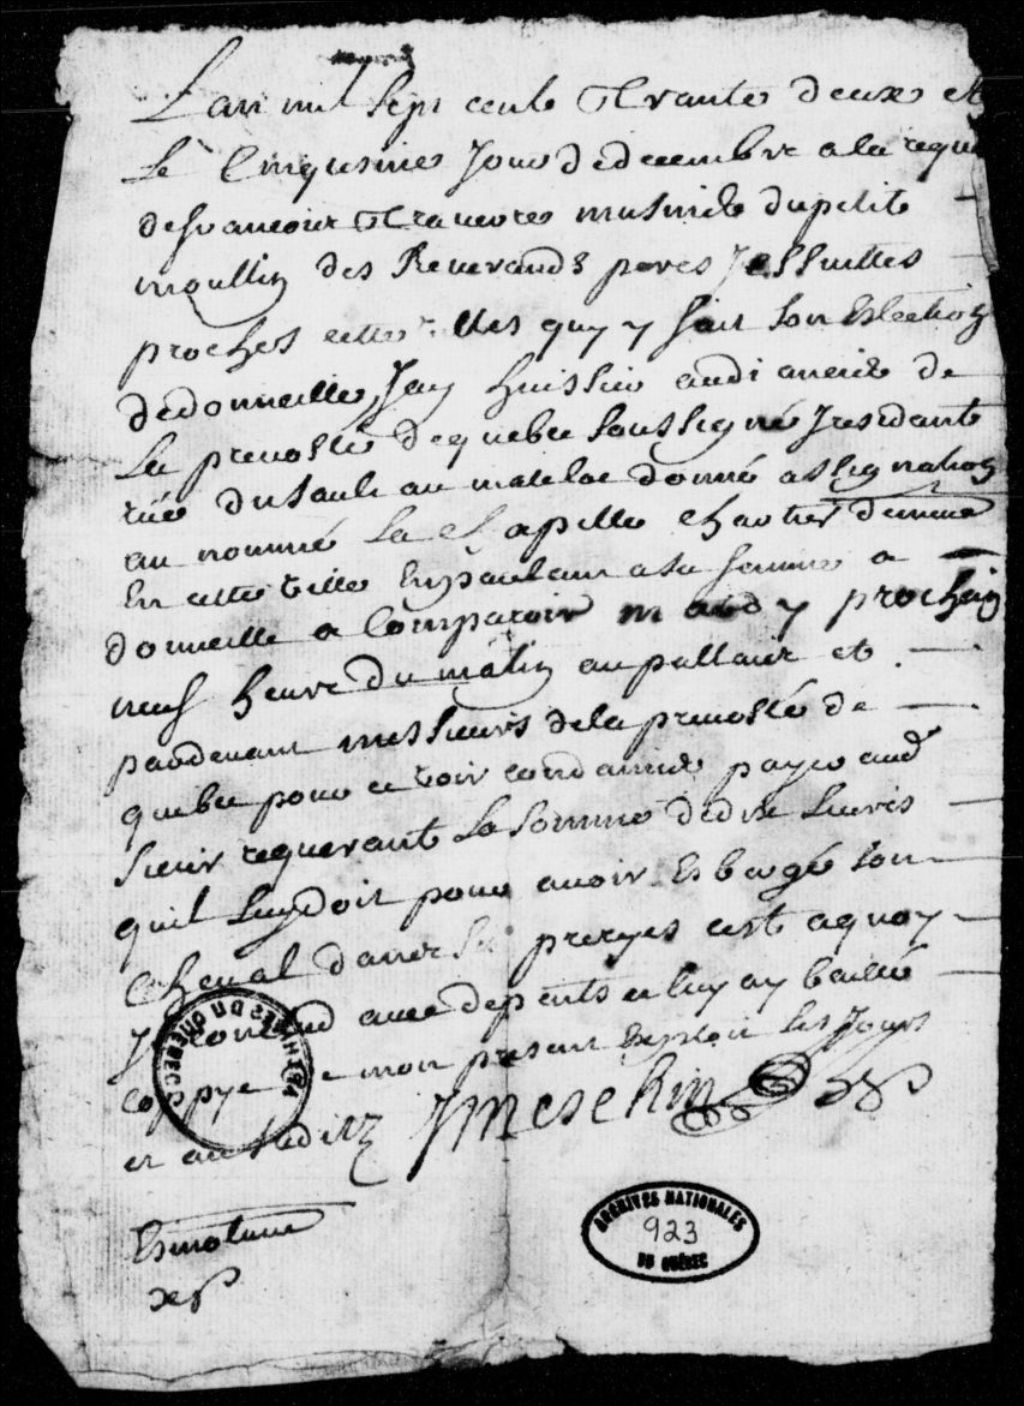 L'an mil sept cents Trante deux et
Le Cinqusme Jour de decembre a la reque
de francois Trauerce musnier du petit
moullin des Reuerands peres Jessuittes
proches cette ville quy y fait son Eslection
de domicille Jay huissier audiancier de
La preuosté de quebec soussigné Jresidant
rüe du Sault au matelot donné assignation
au nommé La Chapelle chartier demeu
En cette ville En parlant a sa femme a
domicille a Comparoir mardy prochain
neuf heure du matin au pallais et
pardeuant messieurs de la preuosté de
quebec pour ce voir condamner payer aud
sieur requerant La Somme de dix Liuris
quil Luy doit pour auoir Esbergé son
Cheual dans Les preryes cest a quoy
Jl conclud auec depents et luy ay baillé
coppye de mon present Exploit Les Jours
et an susditz JMeschin
Esmolument
ARCHIVES NATIONALES
923
DU QUÉBEC